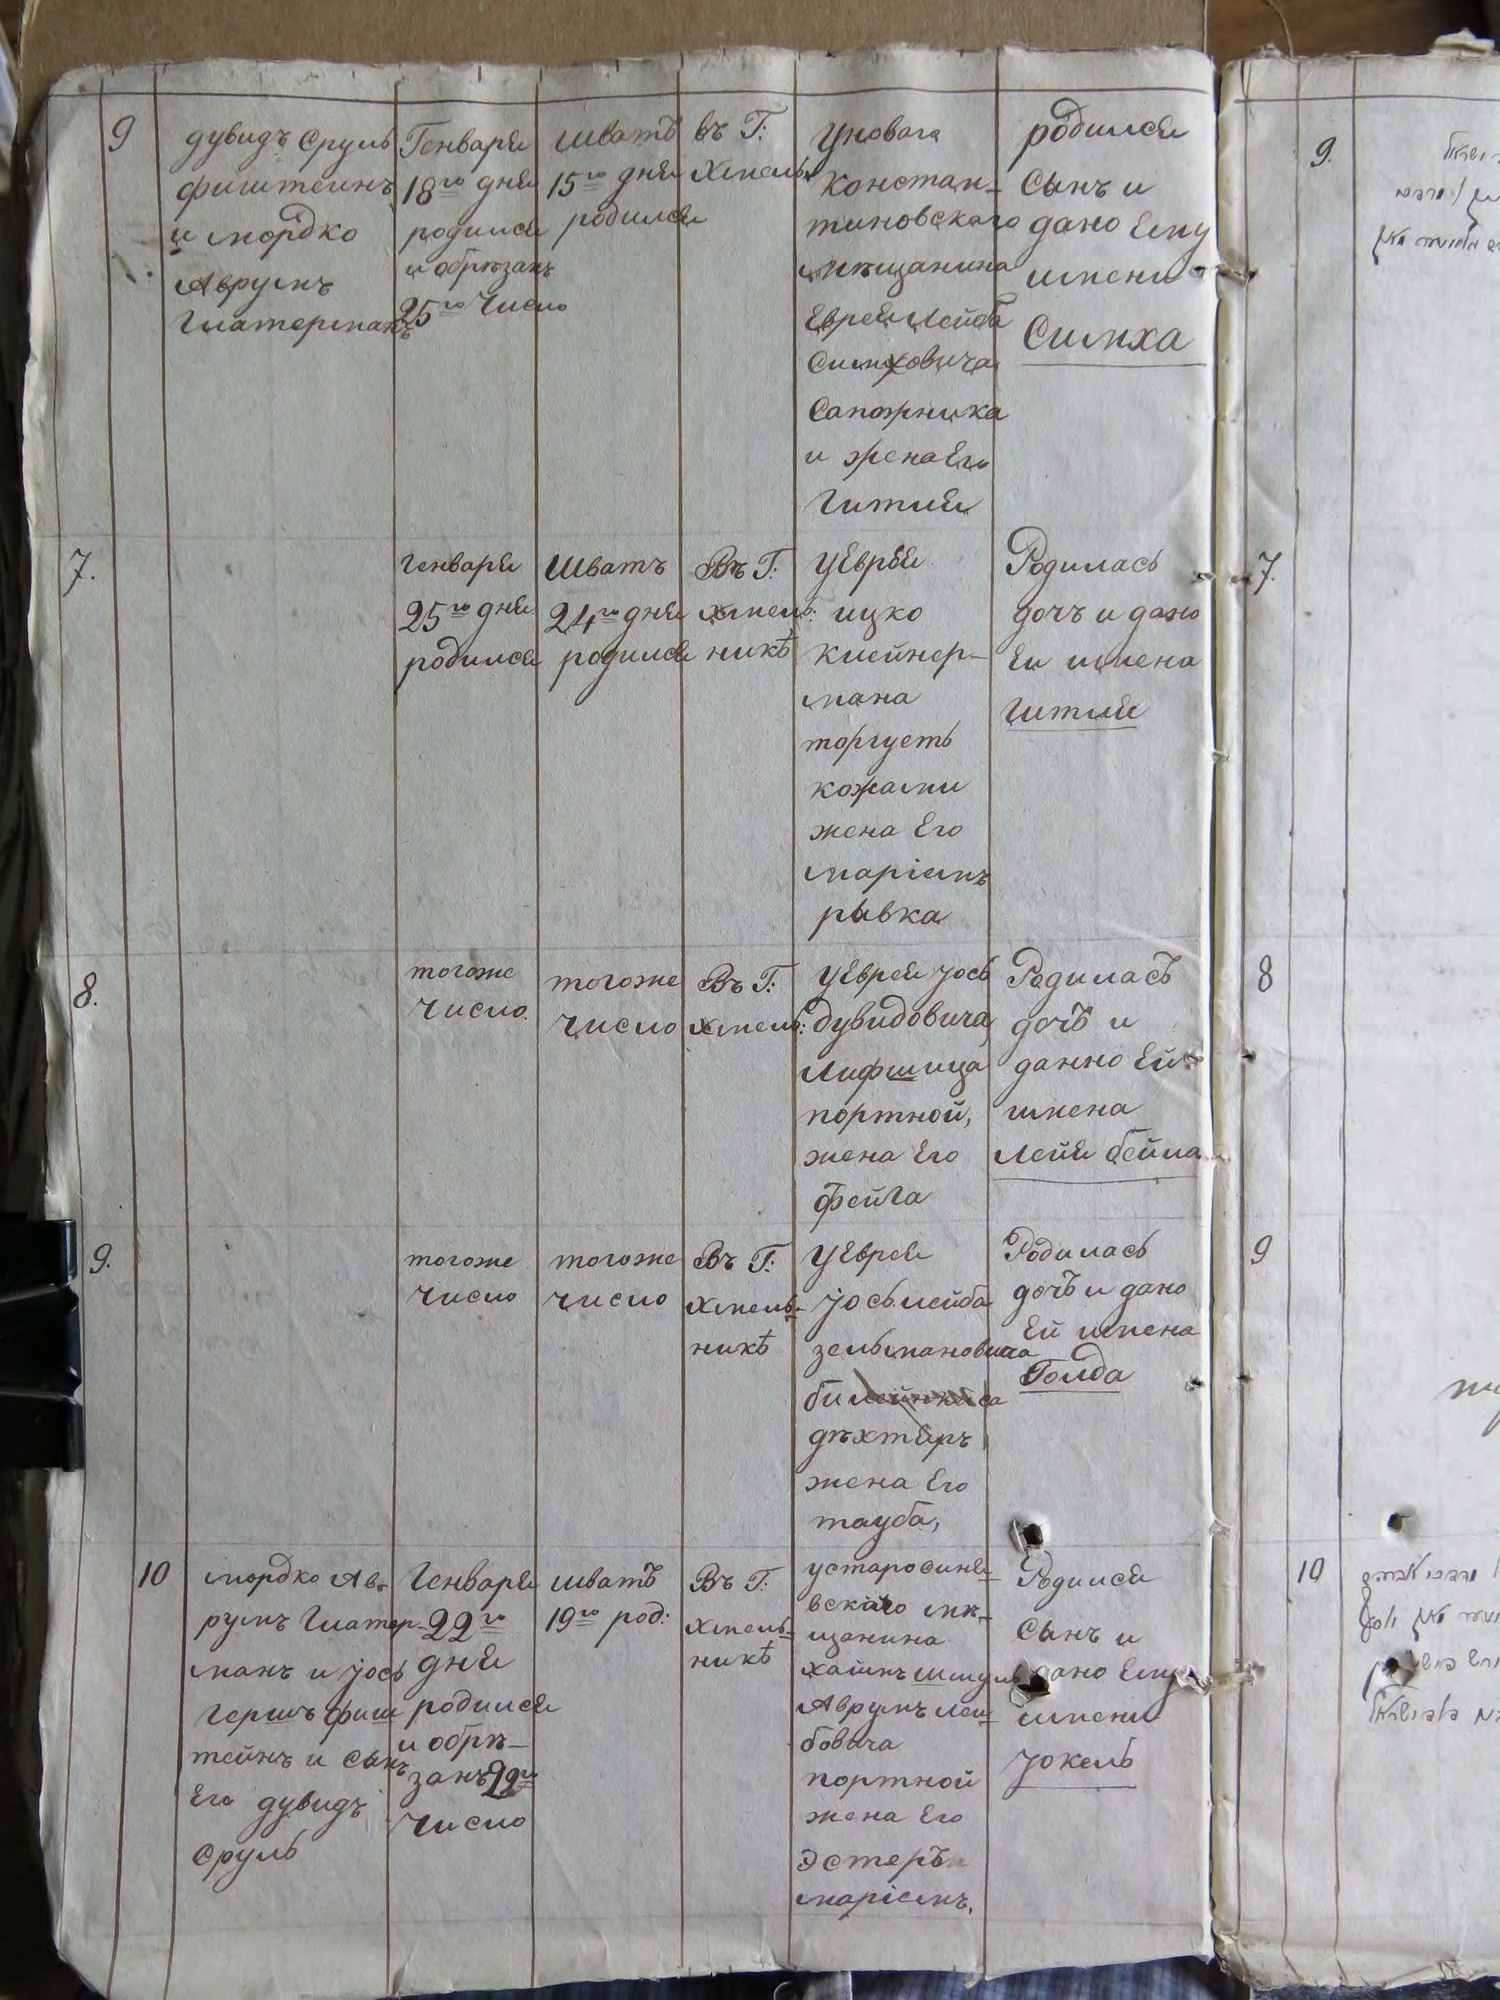 9
дувидъ Сруль
фиштеинъ
и мордко
Аврумъ
Глатерманъ
Генваря
18го дня
родился
и обрѣзанъ
25го число
шватъ
15го дня
родился
въ Г:
Хмель:
у новага
констан-
тиновскаго
мѣщанина
Еврея Лейба
Симховича
Сапожника
и жена Его
Гитля
родился
Сынъ и
дано Ему
имени
Симха
9.
7.
Генваря
25го дня
родился
Шватъ
24го дня
родился
Въ Г:
хмель:
никѣ
у Еврея
ицко
клейнер-
мана
торгуеть
кожами
жена Его
маріемъ
рывка
Родилась
дочъ и дано
Еи имена
Гитля
7.
8.
тогоже
Число.
тогоже
число
Въ Г:
хмель:
у Еврея Јось
дувидовича
Лифшица
портной,
жена Его
Фейга
Родиласъ
дочъ и
данно Ей
имена
Лейя бейла
8
9.
тогоже
число
тогоже
число
Въ Г:
Хмель-
никѣ
у Еврея
Јось лейба
зельмановича
дѣхтяръ,
жена Его
тауба,
Родилась
дочъ и дано
Ей имена
Голда
9
10
мордко Ав-
румъ Глатер-
манъ и Јось
Гершъ фиш
тейнъ и сынъ
Его дувидъ
Сруль
Генваря
22го
дня
родился
и обрѣ-
занъ 29го
Число
шватъ
19го род:
Въ Г:
хмель-
никѣ
у старосиня-
вского мѣ-
щанина
хаимъ шмуль
Аврумъ Лей-
бовича
портной
жена Его
Эстеръ
маріемъ.
Родился
Сынъ и
дано Ему
имени
Јокель
10